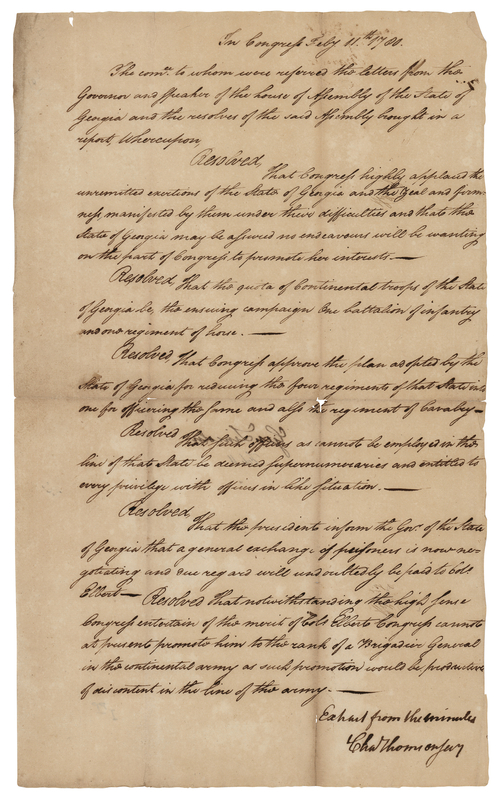 In Congress Feby 11.th 1780.
The comee. to whom were referred the letters from the
Governor and speaker of the house of Assembly of the State of
Georgia and the resolves of the said Assembly brought in a
report, Whereupon
Resolved
That Congress highly applaud the
unremitted exertions of the State of Georgia and the zeal and firm-
ness manifested by them under their difficulties and that the
State of Georgia may be assured no endeavours will be wanting
on the part of Congress to promote her interests. —
Resolved That the quota of Continental troops of the State
of Georgia be, the ensuing campaign One battalion of infantry
and one regiment of horse. —
Resolved That Congress approve the plan adopted by the
State of Georgia for reducing the four regiments of that State into
one for officering the same and also regiment of Cavalry —
Resolved
That such officers as cannot be employed in the
line of that State be deemed supernumeraries and entitled to
every privilege with officers in like situation. —
Resolved
That the president inform the Govr. of the State
of Georgia that a general exchange of prisoners is now ne-
gotiating and due regard will undoubtedly be paid to Colo
Elbert — Resolved That notwithstanding the high sense
Congress entertain of the merit of Colo Elbert Congress cannot
at present promote him to the rank of a Brigadier General
in the continental army as such promotion would be productive
of discontent in the line of the army. —
Extract from the minutes
Chas Thomson secy